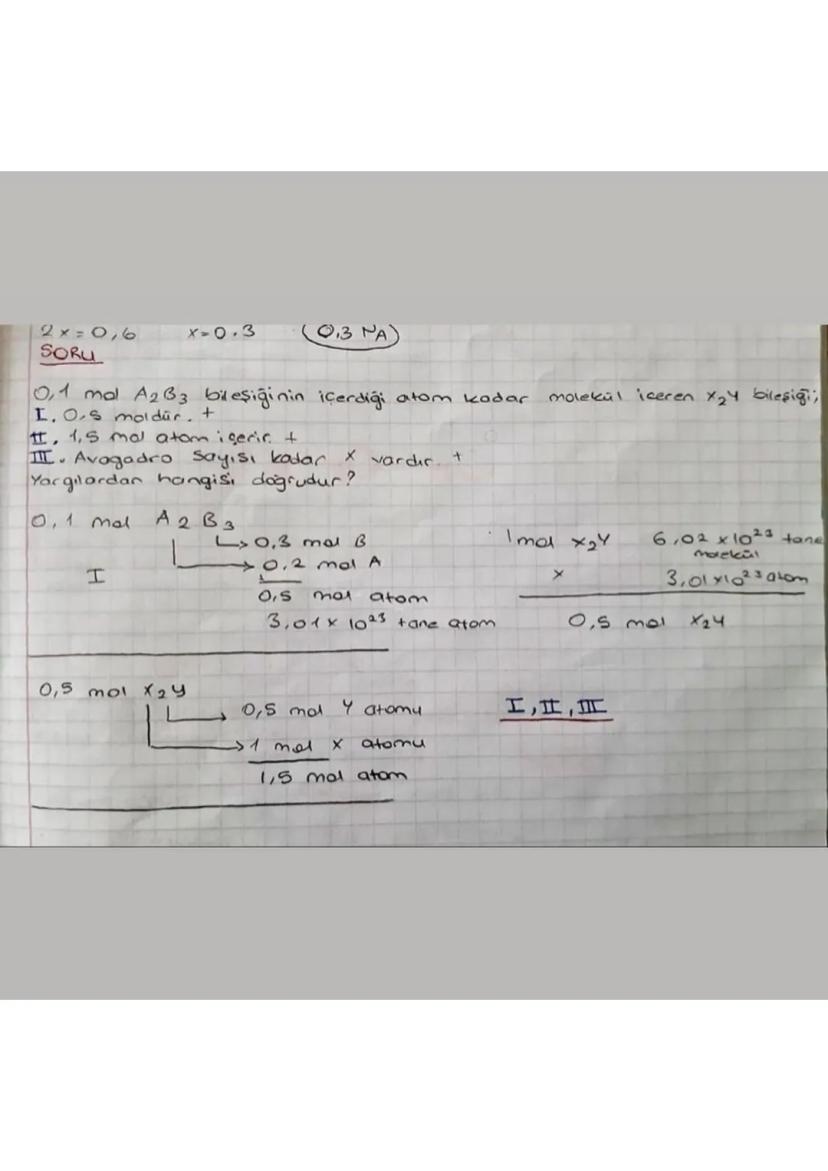 2x=0,6 x=0.3 (0,3 NA)
SORU
0,1 mol A2B3 bileşiğinin içerdiği atom kadar molekül içeren X2Y bileşiği;
I. 0,5 moldür. +
II. 1,5 mol atom içerir. +
III. Avagadro sayısı kadar X vardır. +
Yargılardan hangisi doğrudur?
0,1 mol A2B3
0,3 mol B
0,2 mol A
I
0,5 mol atom
3,01 x 10²³ tane atom
1 mol X2Y 6,02 x 10²³ tane
molekül
x 3,01 x 10²³ atom
0,5 mol X2Y
0,5 mol X2Y
0,5 mol Y atomu
1 mol X atomu
1,5 mol atom
I, II, III